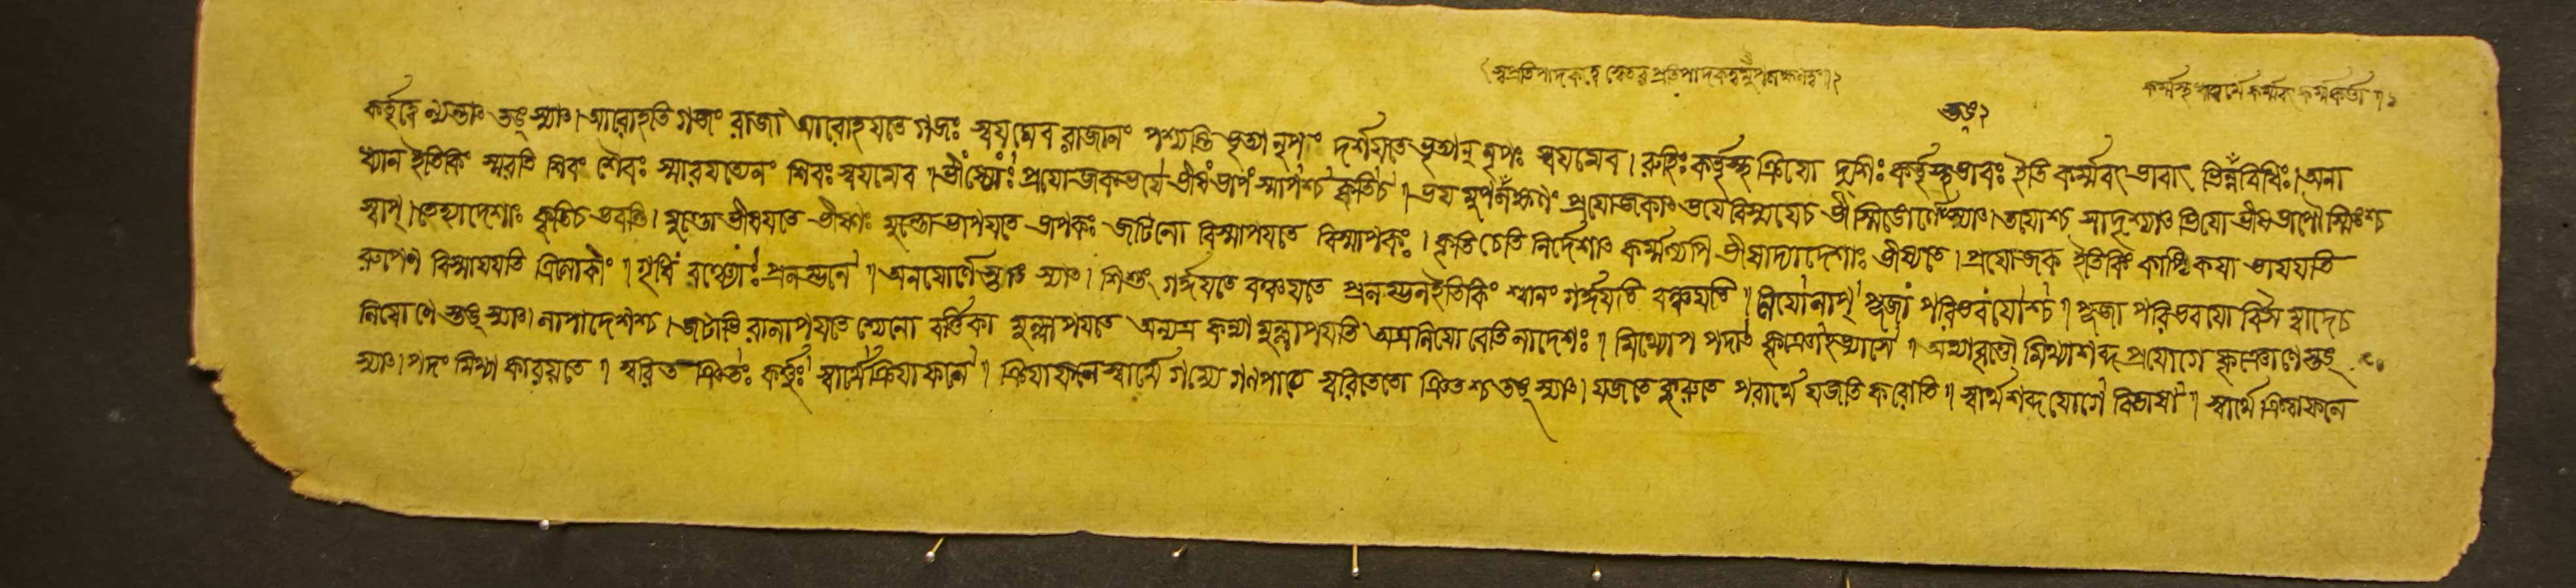 স্বপ্রতিপাদকত্বে স্বেতর প্রতিপাদকত্বমুঁপলক্ষণত্বং।২
কর্ম্মস্থ কর্ম্মবৎ কর্ম্মকর্ত্তা ৷১
তঙ্ ২
কর্তৃত্বে ণ্যন্তাৎ তঙ্ স্যাৎ। আরোহতি গজং রাজা আরোহযতে গজঃ স্বযমেব রাজানং পশ্যন্তি ভৃত্যা নৃপং দর্শযতে ভৃত্যান্ নৃপঃ স্বযমেব। রুহিঃ কর্তৃস্থ ক্রিযো দৃশিঃ কর্তৃস্থ ভাবঃ ইতি কর্ম্মবৎ ভাবাৎ ভিন্নঁ বিধিঃ। অনা
ধ্যান ইতিকিং স্মরতি শিবং শৈবঃ স্মারযত্যেনং শিবঃ স্বযমেব ৷ ভীস্ম্যোঃ প্রযোজকাদ্ভযে ভীষভাপ স্মাপশ্চ কৃতিচ ৷ ভয মুপলঁক্ষণং প্রযোজকাৎ ভযে বিস্মযেচ ভীস্মিভ্যাং স্যাৎ। তযোশ্চ সাদৃশ্যাৎ ভিযো ভীষভাপৌ স্মিঙশ্চ
স্মাপ্। এতেআদেশাঃ কৃতিচ ভবন্তি। মুণ্ডো ভীষযতে ভীষণঃ মুণ্ডো ভাপযতে ভাপকঃ জটিলো বিস্মাপযতে বিস্মাপকঃ। কৃতি চেতি নির্দেশাৎ কর্ম্মণ্যপি ভীষাদ্যাদেশাঃ ভীষ্যতে। প্রযোজক ইতিকিং কাঞ্চিকযা ভাযযতি
রূপেণ বিস্মাযযতি ত্রিলোকীং ৷ গৃধি বঞ্চ্যোঃ প্রলম্ভনে ৷ অনযোর্ণে স্যাৎ। শিশুং গর্দ্ধযতে বঞ্চযতে প্রলম্ভন ইতিকিং শ্বানং গর্দ্ধযতি বঞ্চযতি ৷ লিযোনাপ্ পূজা পরিভবযোশ্চ ৷ পূজা পরিভবযো র্বিসম্বাদেচ
লিযো ণে স্তঙ্ স্যাৎ। নাপাদেশশ্চ। জটাভি রালাপযতে শ্যেনো বর্ত্তিকা মুল্লাপযতে অন্যত্র কন্যা মুল্লাপযতি অত্রলিযো বেতি নাদেশঃ ৷ মিথ্যোপ পদাৎ কৃঞোঽভ্যাসে ৷ অভ্যাবৃত্তৌ মিথ্যাশব্দ প্রযোগে কৃঞোণেস্তঙ্
স্যাৎ। পদং মিথ্যা কারযতে ৷ স্বরিত ঞিতঃ কর্ত্তুঃ স্বার্থে ক্রিযা ফলে ৷ ক্রিযাফলে স্বার্থে গম্যে গণপাঠে স্বরিতেতো ঞিতশ্চ তঙ্ স্যাৎ। যজতে কুরুতে পরার্থে যজতি করোতি ৷ স্বার্থশব্দ যোগে বিভাষা ৷ স্বার্থে ক্রিযাফলে